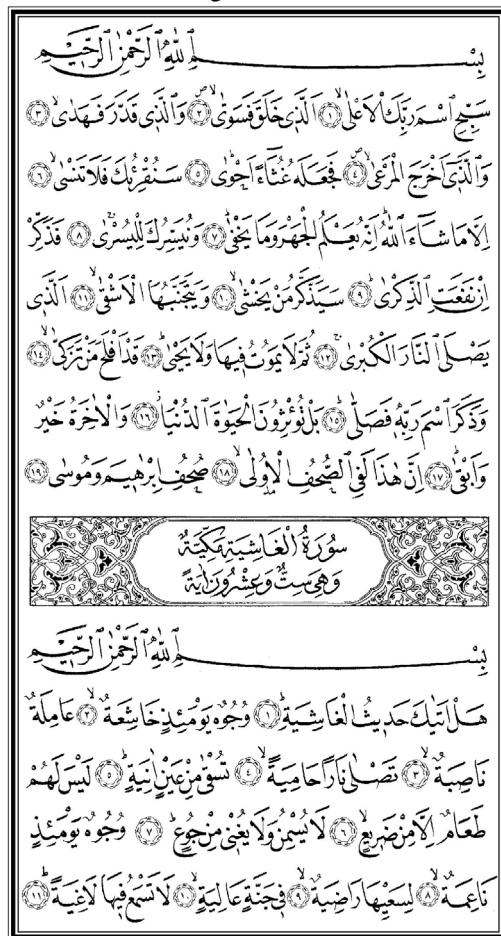 بِسْمِ اللّٰهِ الرَّحْمٰنِ الرَّحِيْمِ
سَبِّحِ اسْمَ رَبِّكَ الْاَعْلٰىۙ ﴿١﴾ اَلَّذٖى خَلَقَ فَسَوّٰىۙ ﴿٢﴾ وَالَّذٖى قَدَّرَ فَهَدٰىۙ ﴿٣﴾
وَالَّذٖٓى اَخْرَجَ الْمَرْعٰىۙ ﴿٤﴾ فَجَعَلَهُ غُثَٓاءً اَحْوٰىؕ ﴿٥﴾ سَنُقْرِئُكَ فَلَا تَنْسٰىۙ ﴿٦﴾
اِلَّا مَا شَٓاءَ اللّٰهُؕ اِنَّهُ يَعْلَمُ الْجَهْرَ وَمَا يَخْفٰىؕ ﴿٧﴾ وَنُيَسِّرُكَ لِلْيُسْرٰىۚ ﴿٨﴾ فَذَكِّرْ
اِنْ نَفَعَتِ الذِّكْرٰىؕ ﴿٩﴾ سَيَذَّكَّرُ مَنْ يَخْشٰىۙ ﴿١٠﴾ وَيَتَجَنَّبُهَا الْاَشْقٰىۙ ﴿١١﴾ اَلَّذٖى
يَصْلَى النَّارَ الْكُبْرٰىۚ ﴿١٢﴾ ثُمَّ لَا يَمُوتُ فٖيهَا وَلَا يَحْيٰىؕ ﴿١٣﴾ قَدْ اَفْلَحَ مَنْ تَزَكّٰىۙ ﴿١٤﴾
وَذَكَرَ اسْمَ رَبِّهٖ فَصَلّٰىؕ ﴿١٥﴾ بَلْ تُؤْثِرُونَ الْحَيٰوةَ الدُّنْيَاۘ ﴿١٦﴾ وَالْاٰخِرَةُ خَيْرٌ
وَاَبْقٰىؕ ﴿١٧﴾ اِنَّ هٰذَا لَفِى الصُّحُفِ الْاُولٰىۙ ﴿١٨﴾ صُحُفِ اِبْرٰهٖيمَ وَمُوسٰى ﴿١٩﴾
سُورَةُ الْغَاشِيَةِ مَكِّيَّةٌ
وَهِىَ سِتٌّ وَعِشْرُونَ اٰيَةً
بِسْمِ اللّٰهِ الرَّحْمٰنِ الرَّحِيْمِ
هَلْ اَتٰيكَ حَدٖيثُ الْغَاشِيَةِؕ ﴿١﴾ وُجُوهٌ يَوْمَئِذٍ خَاشِعَةٌۙ ﴿٢﴾ عَامِلَةٌ
نَاصِبَةٌۙ ﴿٣﴾ تَصْلٰى نَارًا حَامِيَةًۙ ﴿٤﴾ تُسْقٰى مِنْ عَيْنٍ اٰنِيَةٍؕ ﴿٥﴾ لَيْسَ لَهُمْ
طَعَامٌ اِلَّا مِنْ ضَرٖيعٍۙ ﴿٦﴾ لَا يُسْمِنُ وَلَا يُغْنٖى مِنْ جُوعٍؕ ﴿٧﴾ وُجُوهٌ يَوْمَئِذٍ
نَاعِمَةٌۙ ﴿٨﴾ لِسَعْيِهَا رَاضِيَةٌۙ ﴿٩﴾ فٖى جَنَّةٍ عَالِيَةٍۙ ﴿١٠﴾ لَا تَسْمَعُ فٖيهَا لَاغِيَةًؕ ﴿١١﴾